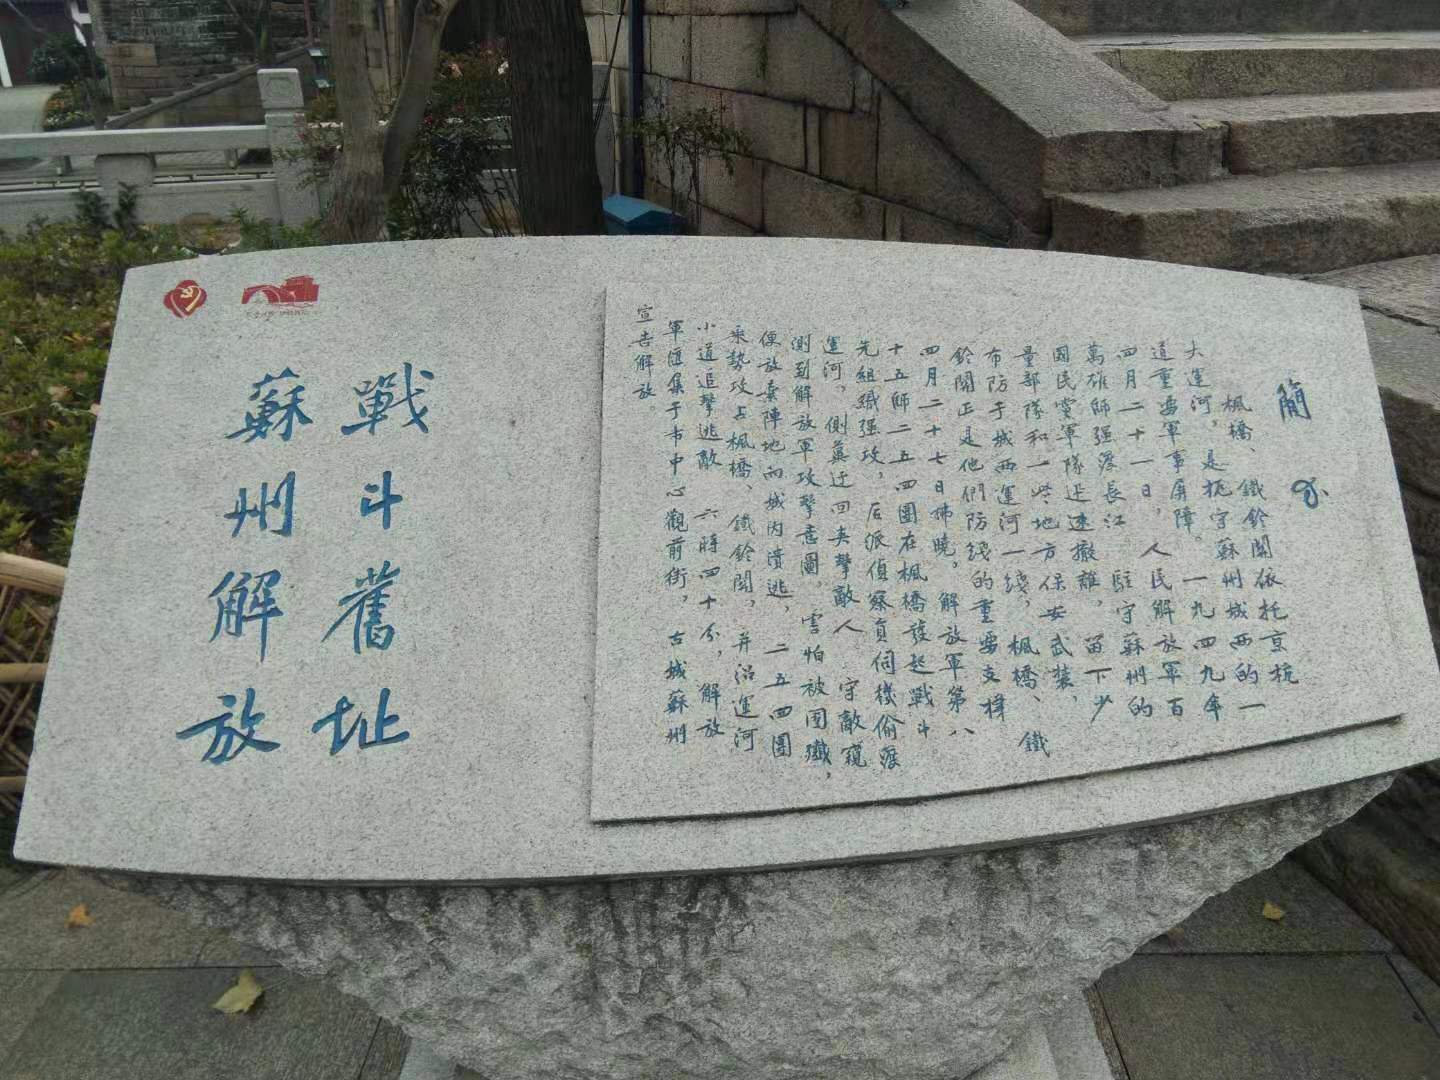 蘇州解放
戰斗舊址
簡介
楓橋、鐵鈴關依托京杭
大運河，是扼守蘇州城西的一
道重要軍事屏障。一九四九年
四月二十一日，人民解放軍百
萬雄師强渡長江。駐守蘇州的
國民党軍隊迅速撤離，留下少
量部隊和一些地方保安武裝，
布防于城西運河一綫，楓橋、鐵
鈴關正是他們防綫的重要支撑
四月二十七日拂曉，解放軍第八
十五師二五四團在楓橋發起戰斗
先組織强攻，后派偵察員伺機偷渡
運河，側翼迂回夾擊敵人 守敵窺
測到解放軍攻擊意圖，害怕被圍殲，
便放棄陣地向城内潰逃，二五四團
乘勢攻占楓橋、鐵鈴關，并沿運河
小道追擊逃敵 六時四十分，解放
軍匯集于市中心觀前街，古城蘇州
宣告解放。